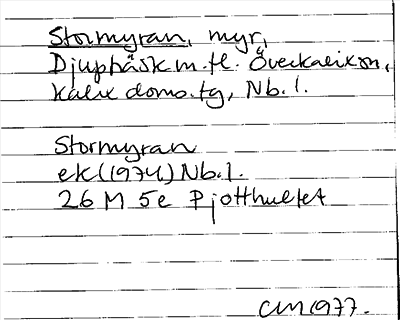 Stormyran, myr,
Djupträsk m.fl. Överkalix sn,
Kalix doms.tg, Nb.l.
Stormyran
ek (1974) Nb.l.
26 M 5e Pjotthultet
CM 1977.